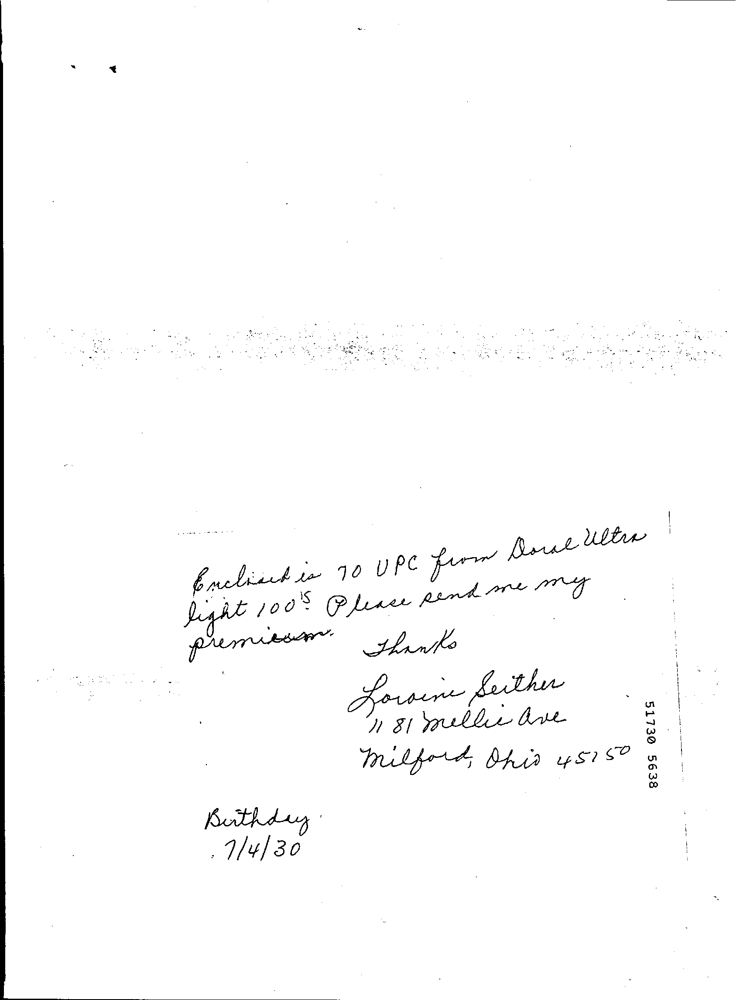 Enclosed is 70 UPC from Doral Ultra
light 100's. Please send me my
premium.
Thanks
Loraine Seither
1181 Mellie Ave
Milford, Ohio 45150
Birthday
7/4/30
51730 5638